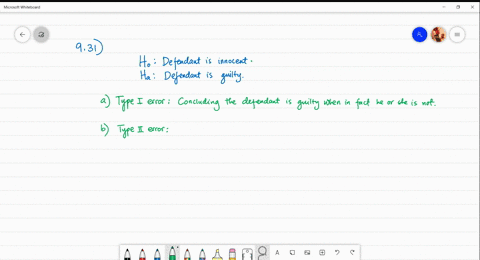 Microsoft Whiteboard
9.31)
H₀: Defendant is innocent.
Hₐ: Defendant is guilty.
a) Type I error: Concluding the defendant is guilty when in fact he or she is not.
b) Type II error: